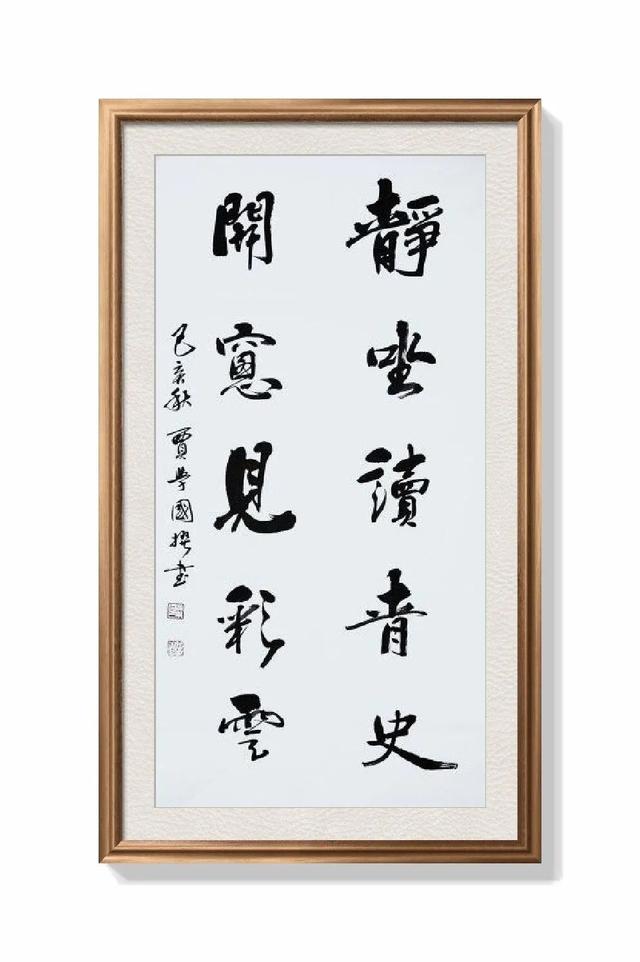 靜坐讀青史
開窻見彩雲
己亥秋賈學國撰書